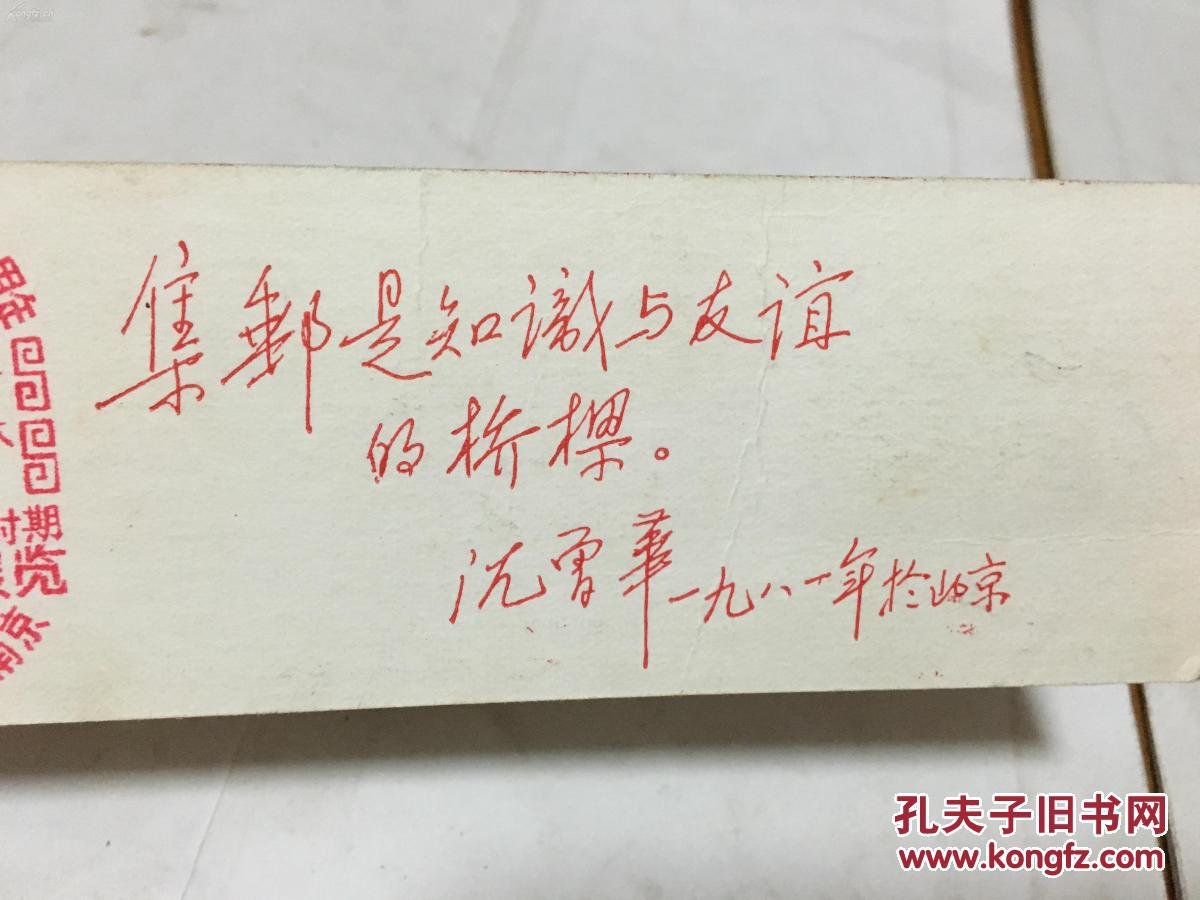 集郵是知識与友谊
的桥樑。
沈曾華一九八一年於北京
时期
展览
南京
孔夫子旧书网
www.kongfz.com